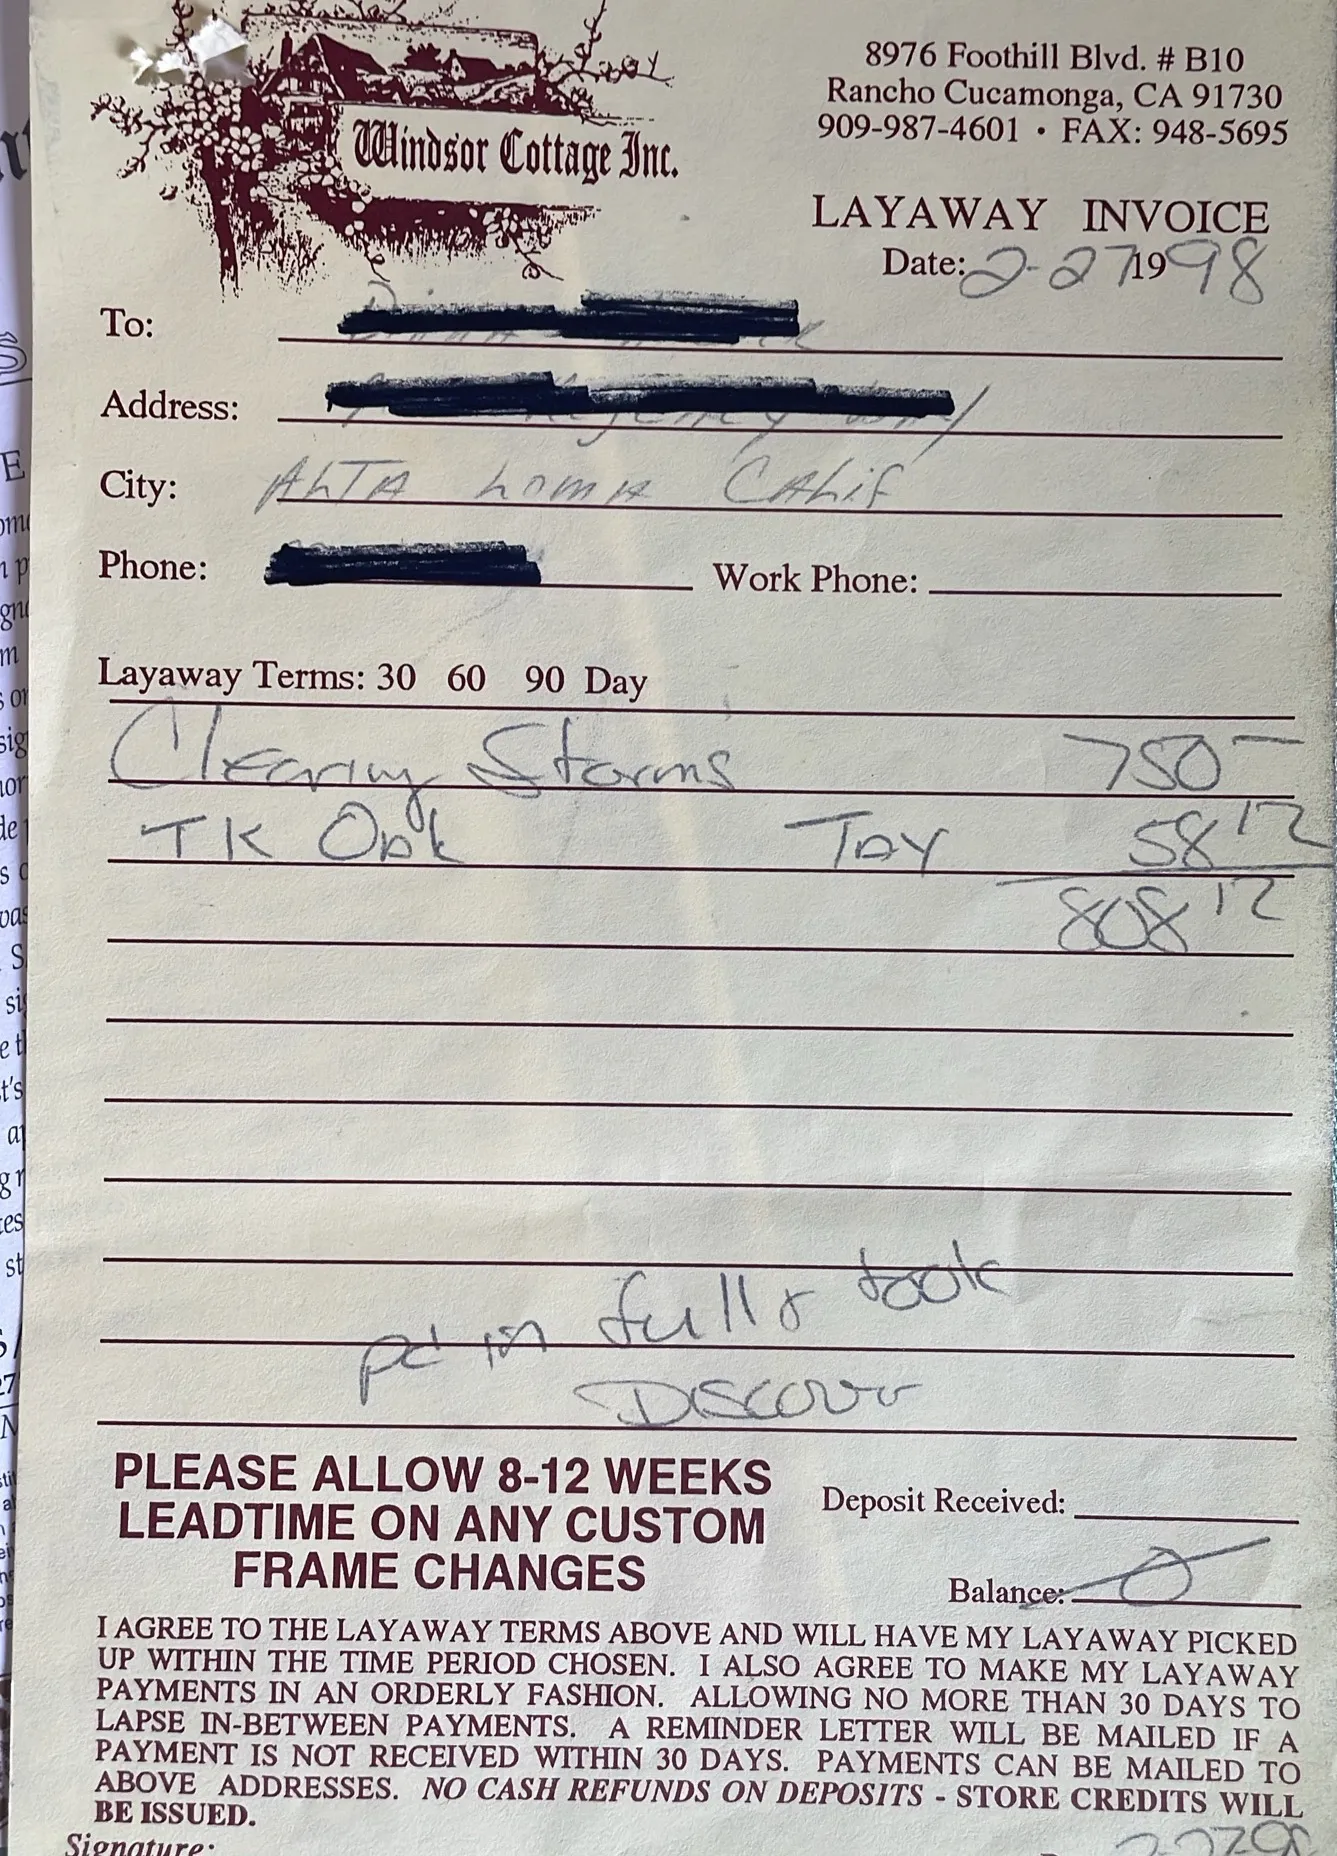 Windsor Cottage Inc.
8976 Foothill Blvd. # B10
Rancho Cucamonga, CA 91730
909-987-4601 • FAX: 948-5695
LAYAWAY INVOICE
Date: 2-27 1998
To:
Address:
City: ALTA LOMA CALIF
Phone: Work Phone:
Layaway Terms: 30 60 90 Day
Clearing Storms 750 —
TK Oak Tax 58 12
808 12
pd in full & took
Discover
PLEASE ALLOW 8-12 WEEKS
LEADTIME ON ANY CUSTOM
FRAME CHANGES
Deposit Received:
Balance: 0
I AGREE TO THE LAYAWAY TERMS ABOVE AND WILL HAVE MY LAYAWAY PICKED
UP WITHIN THE TIME PERIOD CHOSEN. I ALSO AGREE TO MAKE MY LAYAWAY
PAYMENTS IN AN ORDERLY FASHION. ALLOWING NO MORE THAN 30 DAYS TO
LAPSE IN-BETWEEN PAYMENTS. A REMINDER LETTER WILL BE MAILED IF A
PAYMENT IS NOT RECEIVED WITHIN 30 DAYS. PAYMENTS CAN BE MAILED TO
ABOVE ADDRESSES. NO CASH REFUNDS ON DEPOSITS - STORE CREDITS WILL
BE ISSUED.
Signature: 2-27-98